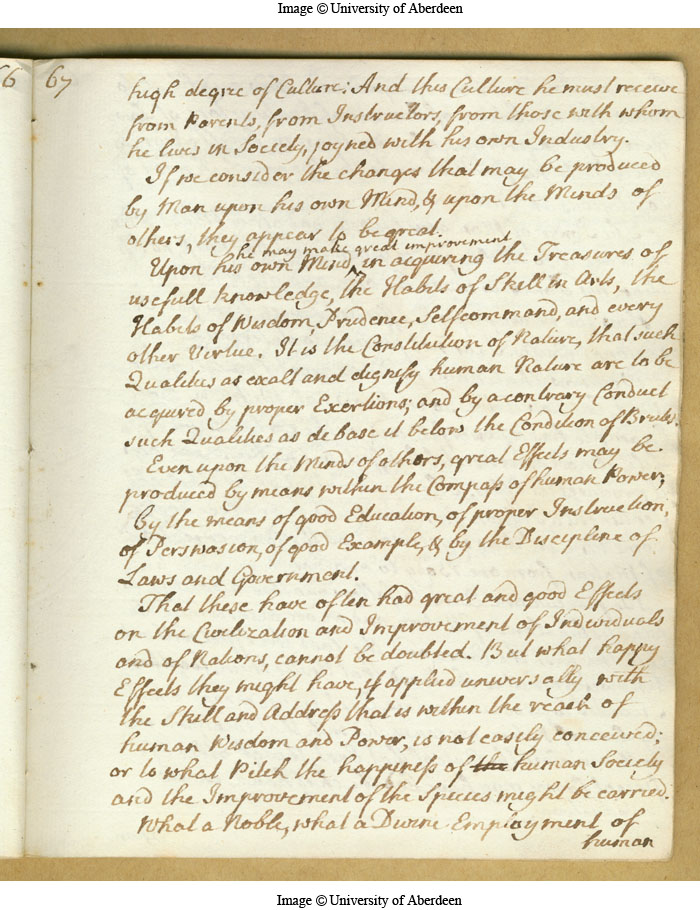 Image © University of Aberdeen
66 67
high degree of Culture: And this Culture he must receive
from Parents, from Instructors, from those with whom
he lives in Society, joyned with his own Industry.
If we consider the changes that may be produced
by Man upon his own Mind, & upon the Minds of
others, they appear to be great.
he may make great improvement
Upon his own Mind ^ in acquiring the Treasures of
usefull knowledge, the Habits of Skill in Arts, the
Habits of Wisdom, Prudence, Selfcommand, and every
other Virtue. It is the Constitution of Nature, that such
Qualities as exalt and dignify human Nature are to be
acquired by proper Exertions; and by a contrary Conduct
such Qualities as debase it below the Condition of Brutes.
Even upon the Minds of others, great Effects may be
produced by means within the Compass of human Power;
by the means of good Education, of proper Instruction,
of Perswasion, of good Example, & by the Discipline of
Laws and Government.
That these have often had great and good Effects
on the Civilization and Improvement of Individuals
and of Nations, cannot be doubted. But what happy
Effects they might have, if applied universally with
the Skill and Address that is within the reach of
human Wisdom and Power, is not easely conceived;
or to what Pitch the happiness of the human Society
and the Improvement of the Species might be carried.
What a Noble, what a Divine Employment of
human
Image © University of Aberdeen